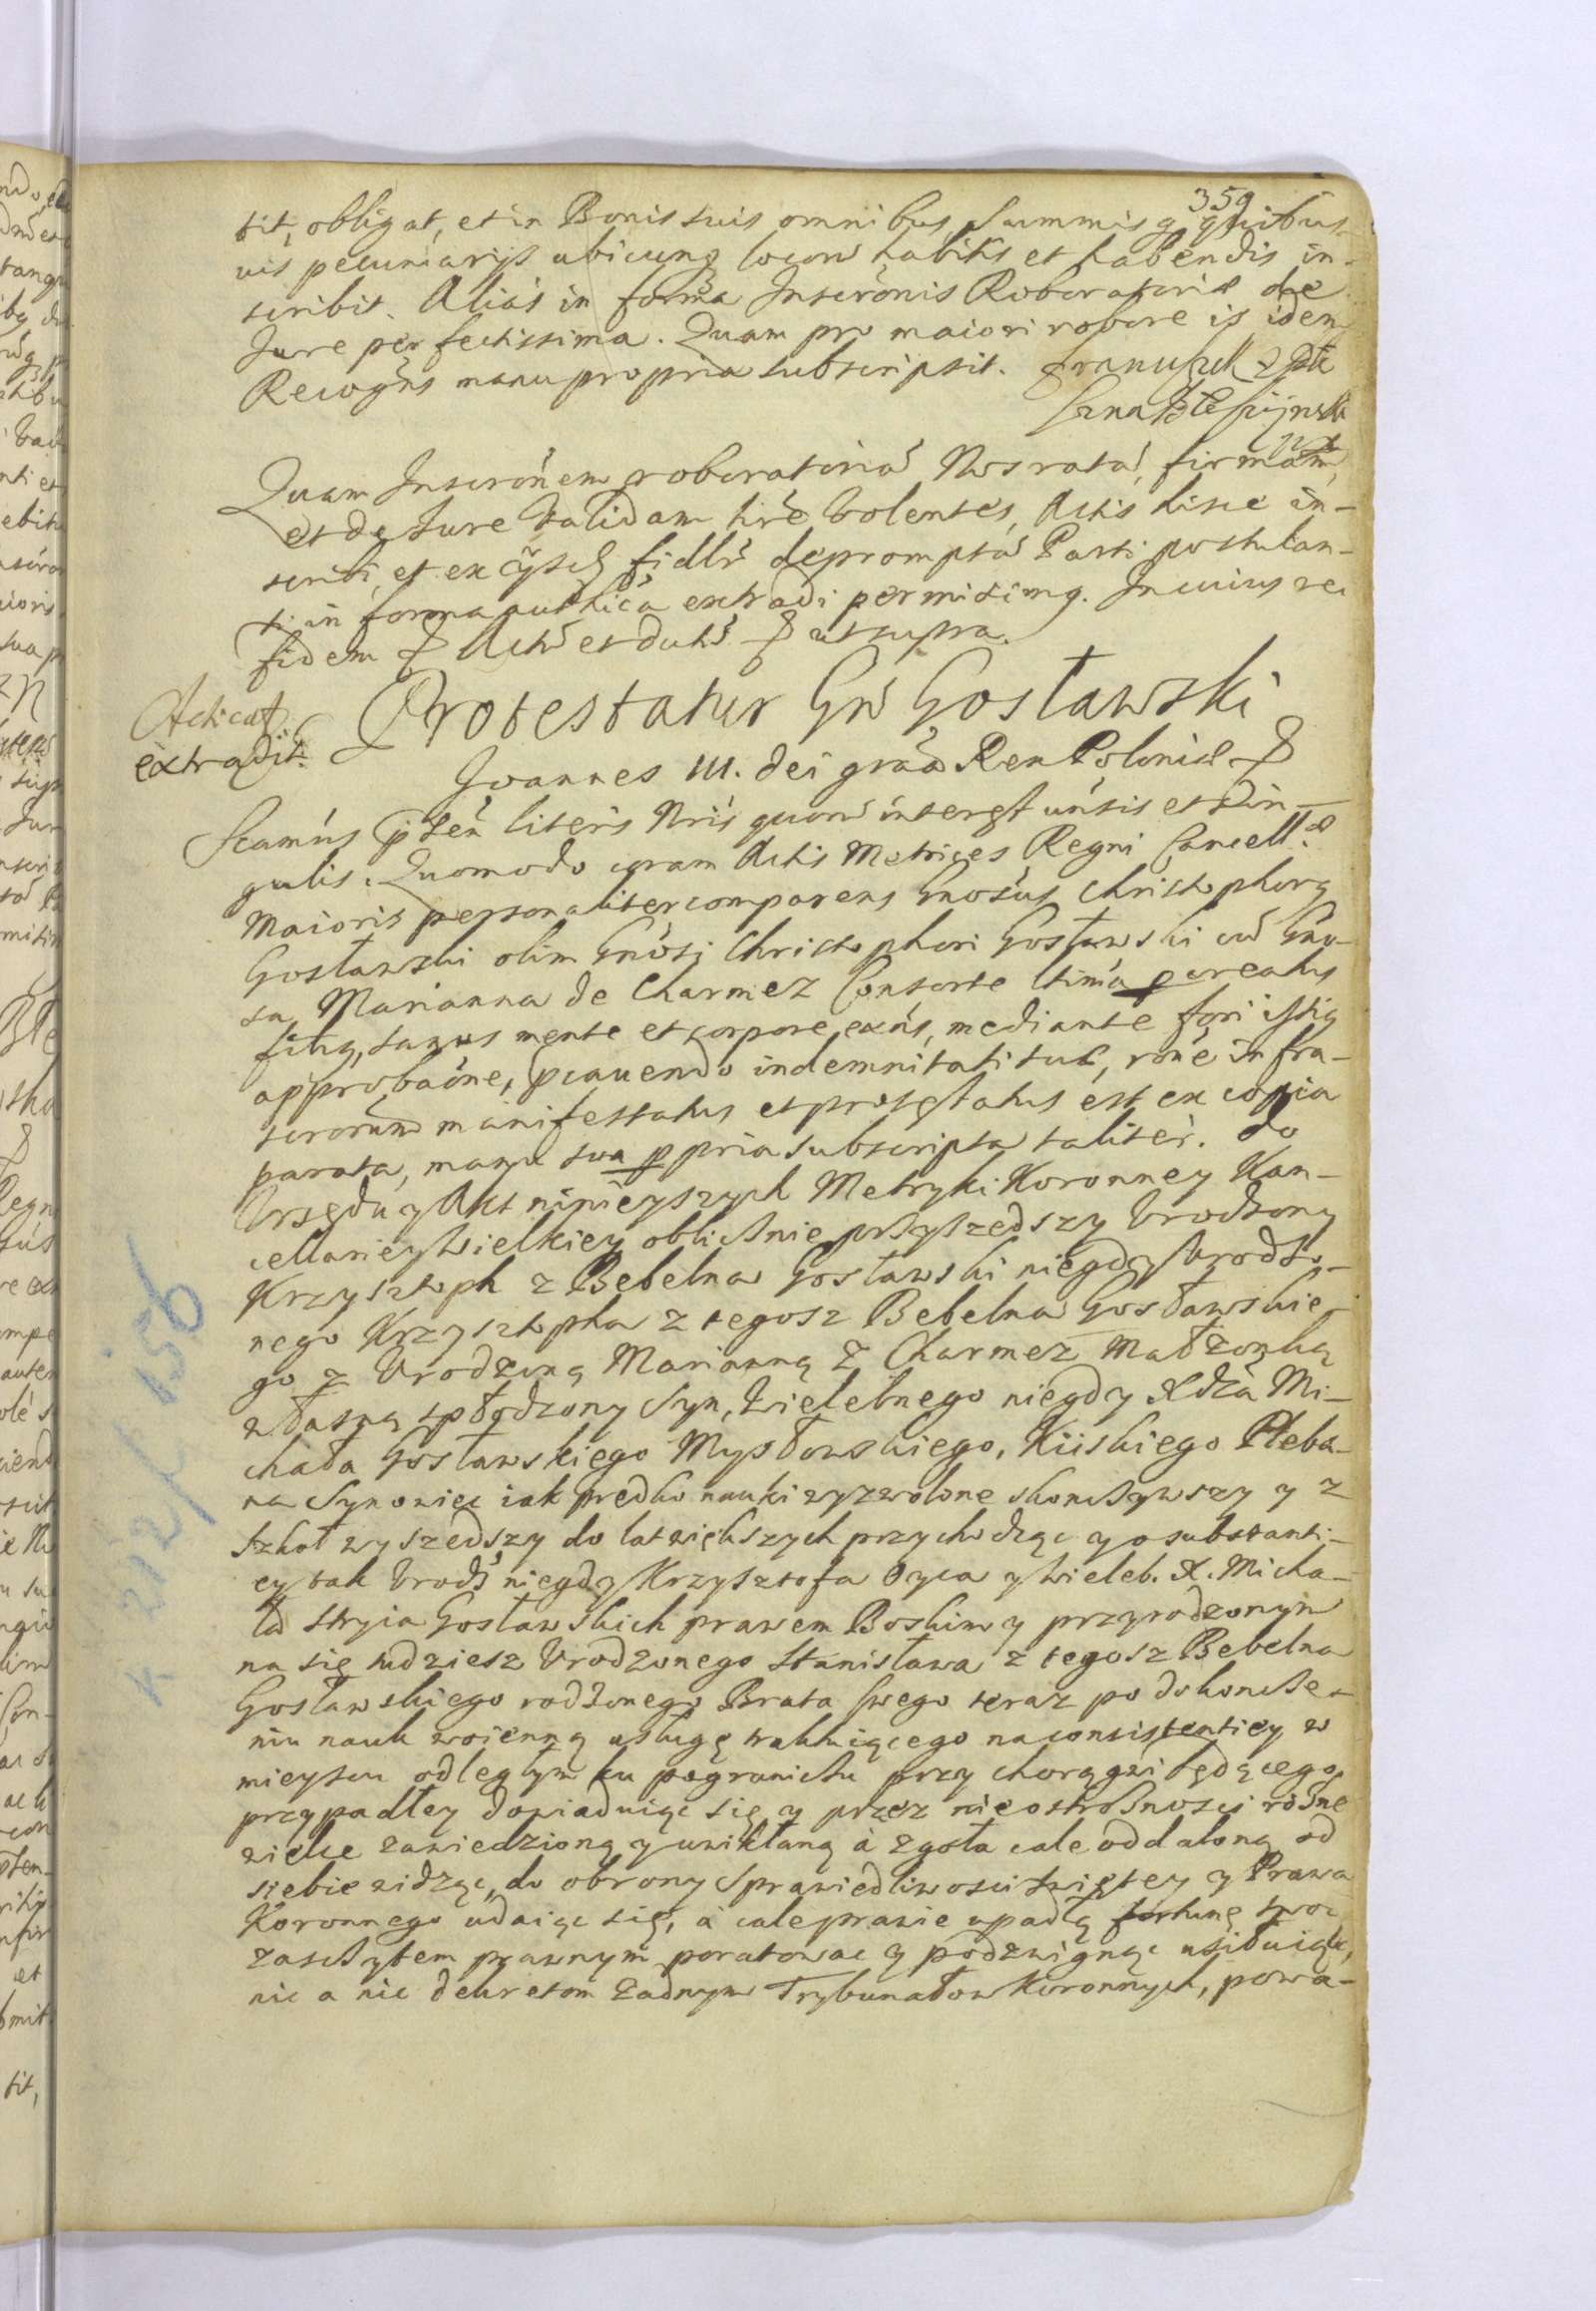 359
tit, obligat, et in Bonis suis omnibus Summisq quibus
vis pecuniarijs ubicunq locorũ habitis et habendis in-
scribit. Aliàs in forma Inscrōnis Roboratoriæ de
Jure perfectissima. Quam pro maiori robore is idem
Recogñs manu propria subscripsit. Franciszek
Quam Inscrōnem roboratoriã Nos ratã, firmam,
et de Jure validam hr̃e volentes, Actis hisce in-
scribi, et ex ijsd fidlr̃ depromptã Parti postulan-
ti in forma authica extradi permisimq. In cuius rei
fidem & Actũ et datũ & ut supra.
Acticat
extradit.
Protestatur Gñ Gosławski
Joannes III. dei gr̃a Rex Poloniæ &
Scamús literis Nr̃is quorũ interest uńsis et sin-
gulis. Quomodo coram Actis Metrices Regni Cancell.æ
Maioris personaliter comparens Gnosús Christophorq
Gosławski olim Gnosi Christophori Gosławski cũ Gno-
sa Marianna de Charmez Consorte ltima pcreatus
filiq, sanus mente et corpore exńs, mediante fori istiq
approbaōne, pcavendo indemnitati suæ, rōne infra-
scrorum manifestatus et protestatus est ex copia
parata, manu sua ppria subscripta taliter. Do
Urzędu y Akt ninieyszych Metryki Koronney Kan-
cellariey Wielkiey oblicznie przyszedszy Urodzony
Krzysztoph z Bebelna Gosławski niegdy Urodzo-
nego Krzysztopha z tegosz Bebelna Gosławskie-
go z Urodzoną Marianną z Charmez Małżonką
własną spłodzony Syn, Wielebnego niegdy Xdza Mi-
chała Gosławskiego Mysłowskiego, Kiiskiego Pleba-
na Synowiec iak prędko nauki wyzwolone skonczywszy y z
Szkoł wyszedszy do lat większych przychodząc y o substanti-
ey tak Urodz niegdy Krzysztofa Oyca y Wieleb. X. Micha-
ła Stryia Gosławskich prawem Boskim y przyrodzonym
na się tudziesz Urodzonego Stanisława z tegosz Bebelna
Gosławskiego rodzonego Brata swego teraz po dokoncze-
niu nauk woienną usługę traktuiącego na consistentiey w
mieyscu odległym ku pograniczu przy chorągwi będącego
przypadłey dowiaduiąc się y przez nieostroznosci rózne
wielce zawiedzioną y uwikłaną à zgoła cale oddaloną od
siebie widząc, do obrony Sprawiedliwosci świętey y Prawa
Koronnego udaiąc się, à cale prawie upadłą fortunę swoię
zaszczytem prawnym poratować y podzwignąc usiłuiąc,
nic a nic dekretom żadnym Trybunałow Koronnych, powa-